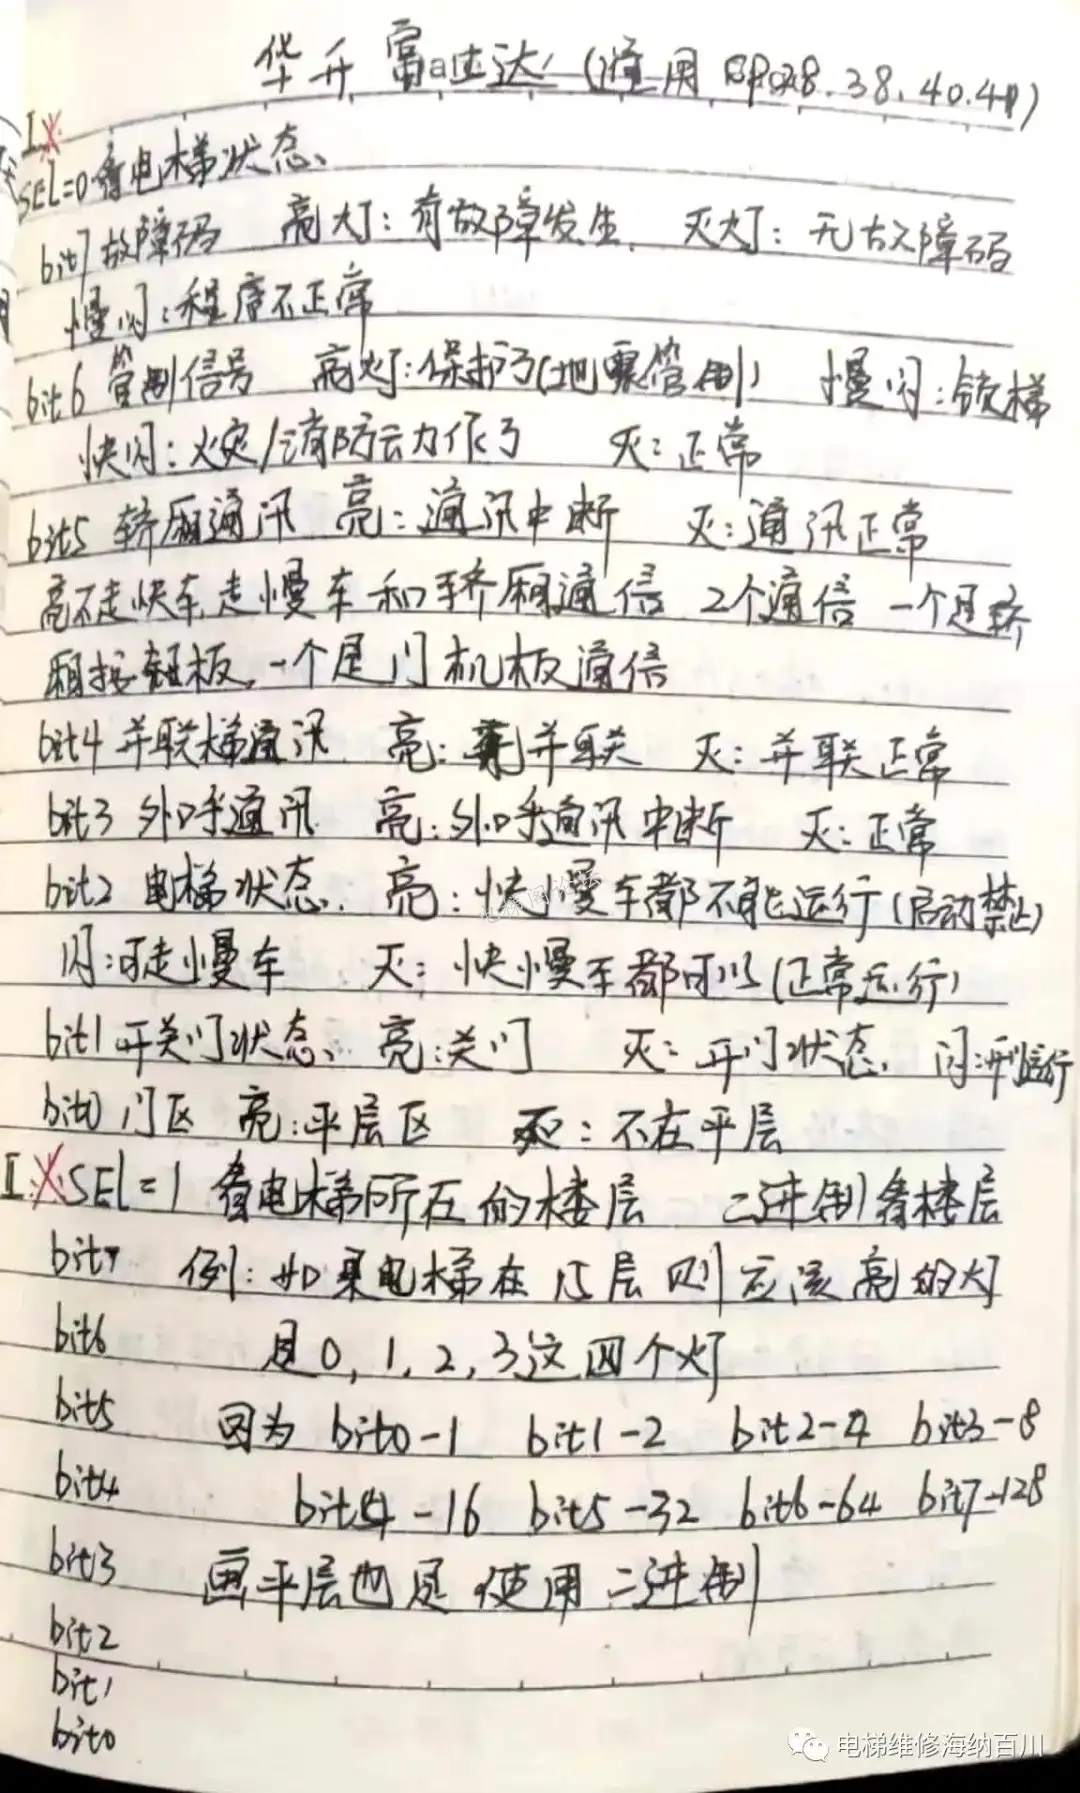 华升富士达 (通用 BP028.38.40.41)
I
SEL=0 看电梯状态、
bit7 故障码 亮灯：有故障发生. 灭灯：无故障码
慢闪：程序不正常
bit6 管制信号 亮灯：保护了(地震管制) 慢闪：锁梯
快闪：火灾/消防动作了 灭：正常
bit5 轿厢通讯 亮：通讯中断 灭：通讯正常
亮不走快车走慢车 和轿厢通信 2个通信 一个是轿
厢按钮板,一个是门机板通信
bit4 并联梯通讯 亮：非并联 灭：并联正常
bit3 外呼通讯 亮：外呼通讯中断 灭：正常
bit2 电梯状态. 亮：快慢车都不能运行(启动禁止)
闪：可走慢车 灭：快慢车都可以(正常运行)
bit1 开关门状态、亮：关门 灭：开门状态. 闪：
bit0 门区 亮：平层区 灭：不在平层
I. SEL=1 看电梯所在的楼层 二进制看楼层
bit7 例：如果电梯在15层则应该亮的灯
bit6 是0,1,2,3这四个灯
bit5 因为 bit0-1 bit1-2 bit2-4 bit3-8
bit4 bit4-16 bit5-32 bit6-64 bit7-128
bit3 画平层也是使用二进制
bit2
bit1
bit0
电梯维修海纳百川